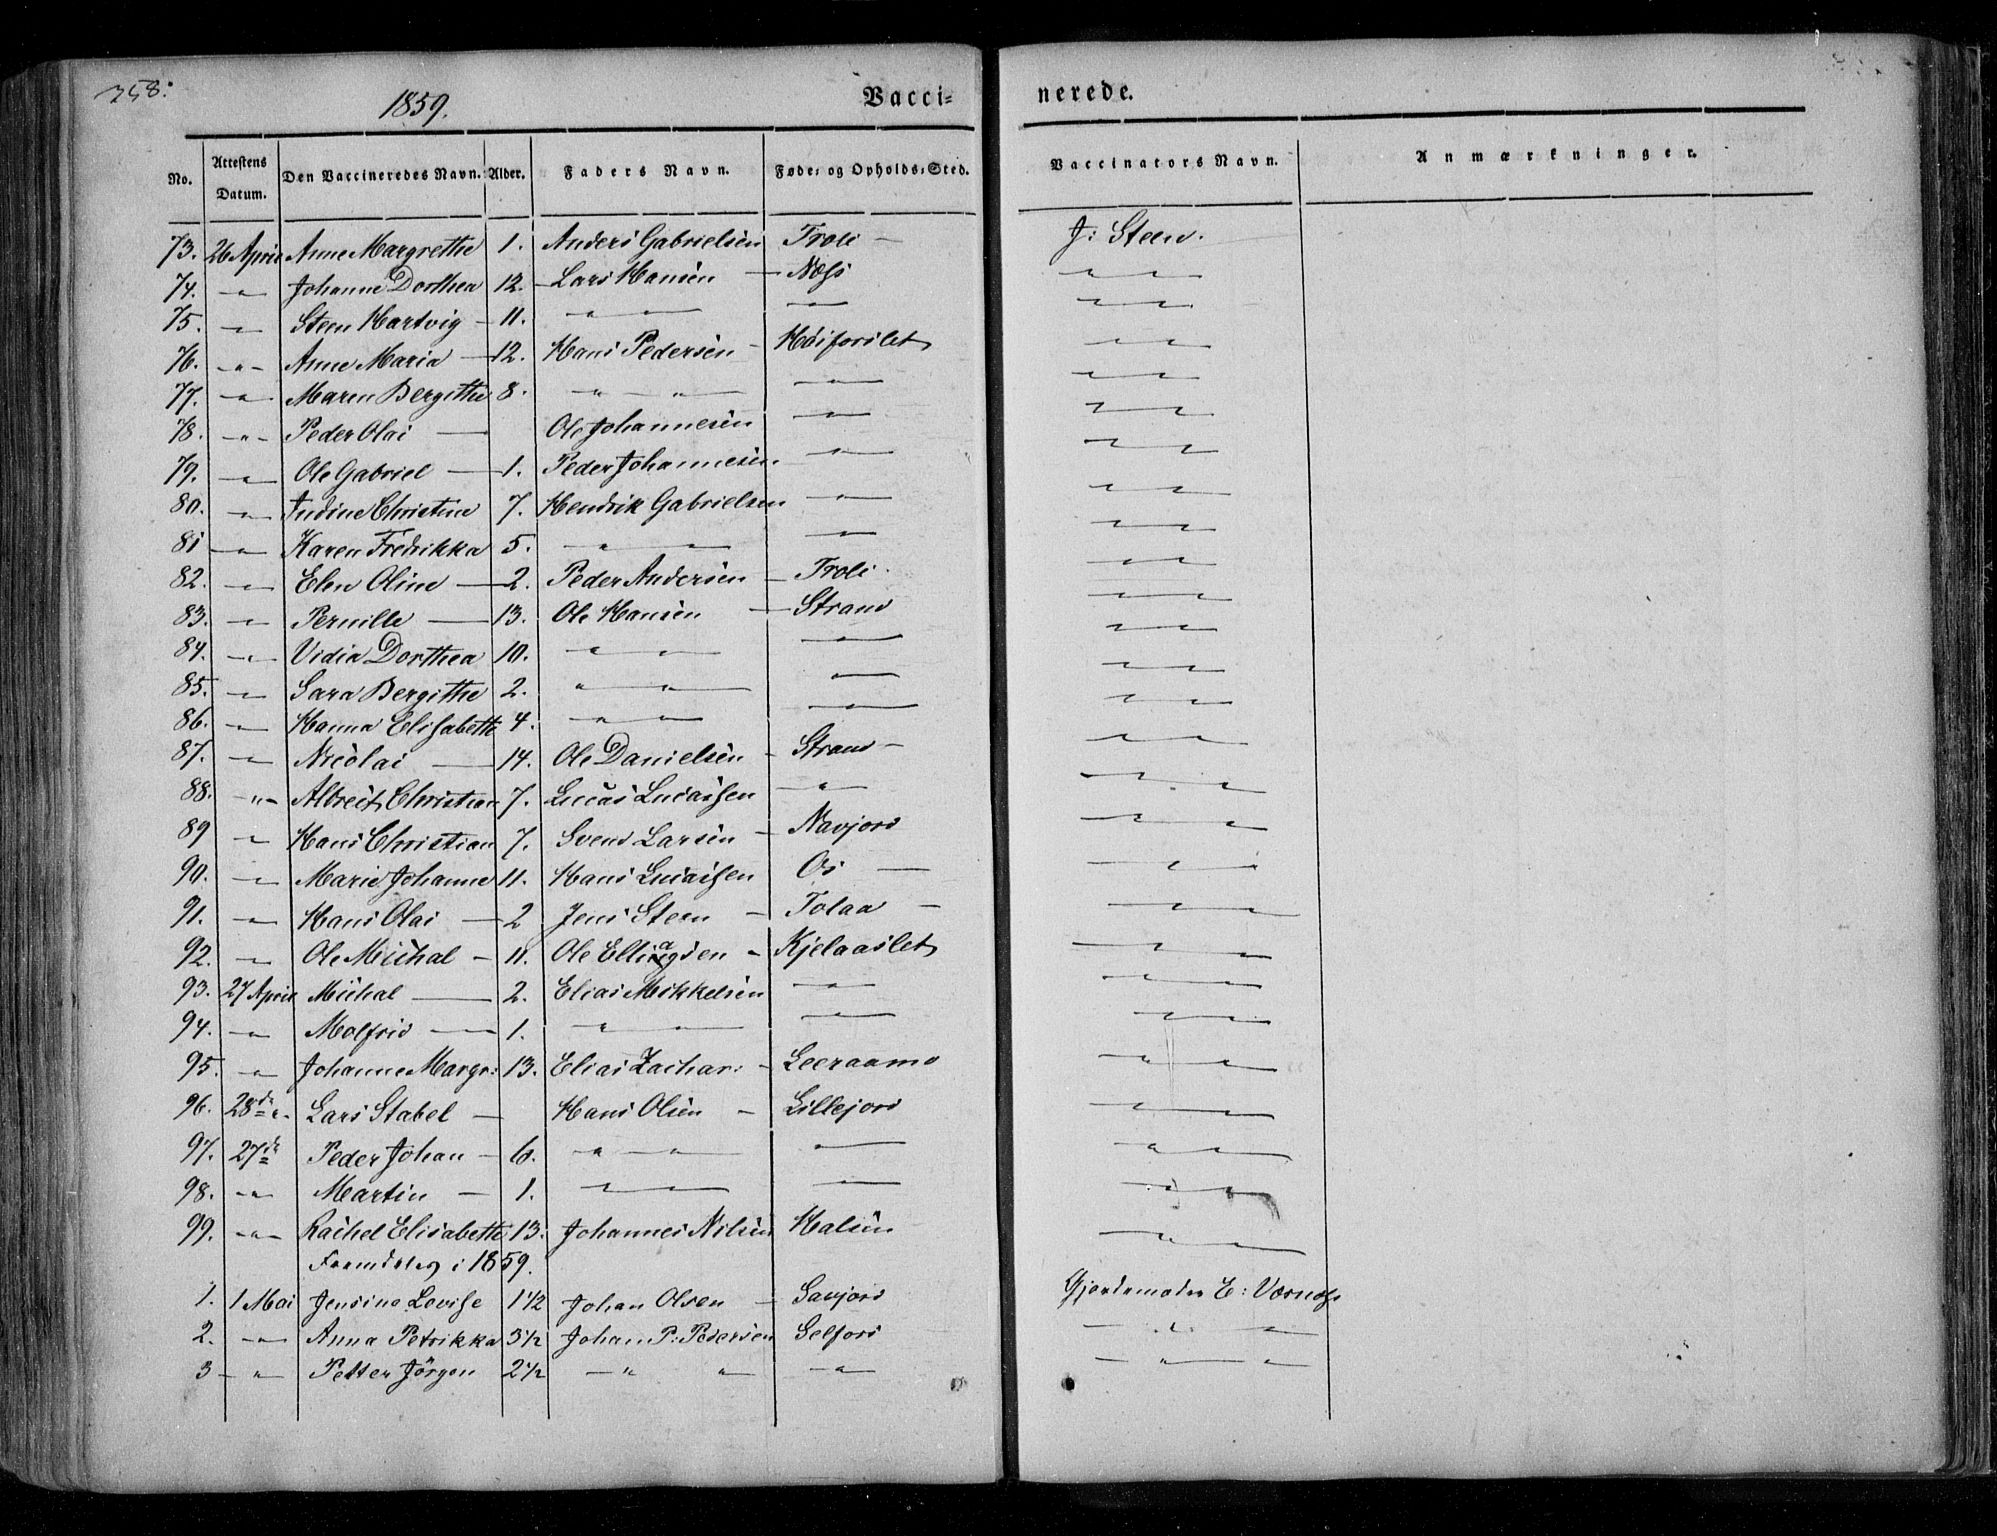 258.
1859. Vacci- nerede.
No. Attestens Datum. Den Vaccineredes Navn. Alder. Faders Navn. Føde- og Opholds-Sted. Vaccinators Navn. Anmærkninger.
73. 26 April Anne Margrethe 1. Anders Gabrielsen Troli — J: Steen.
74. — " — Johanne Dorthea 12. Lars Hansen — Næss — " — " —
75. — " — Steen Hartvig — 11. — " — " — — " — — " — " —
76. — " — Anne Maria — 12. Hans Pedersen — Høiforslet — " — " —
77. — " — Maren Bergithe 8. — " — " — — " — — " — " —
78. — " — Peder Olai — Ole Johannesen — " — — " — " —
79. — " — Ole Gabriel — 1. Peder Johannesen — " — — " — " —
80. — " — Indine Christine 7. Hendrik Gabrielsen — " — — " — " —
81 — " — Karen Fredrikka 5. — " — " — — " — — " — " —
82. — " — Elen Oline — 2. Peder Andersen — Troli. — " — " —
83. — " — Pernille — 13. Ole Hansen — Strand — " — " —
84. — " — Vidia Dorthea 10. — " — " — — " — — " — " —
85. — " — Sara Bergithe 2. — " — " — — " — — " — " —
86. — " — Hanna Elisabeth 4. — " — " — — " — — " — " —
87. — " — Nicolai — 14. Ole Danielsen — Strand — — " — " —
88. — " — Albreit Christian 7. Lucas Lucassen — " — — " — " —
89 — " — Hans Christian 7. Svend Larsen — Navjord — " — " —
90. — " — Marie Johanne 11. Hans Lucassen Os — — " — " —
91. — " — Hans Olai — 2 Jens Steen — Tolaa — — " — " —
92. — " — Ole Michal — 11. Ole Ellingsen — Kjelaaslet — " — " —
93. 27 April Michal — 2. Elias Mikkelsen — " — — " — " —
94. — " — Molfrid — 1. — " — " — — " — — " — " —
95. — " — Johanne Margr: 13. Elias Zachar: — Leeraamo — " — " —
96. 28de " - Lars Stabel — Hans Olsen — Lillejord — " — " —
97. 27de Peder Johan — 6. — " — " — — " — — " — " —
98. — " — Martin — 1. — " — " — — " — — " — " —
99. — " — Rachel Elisabeth 13. Johannes Nilsen Halsen — " — " —
Fremdeles i 1859.
1. 1 Mai Jensine Lovise 1 1/2 Johan Olsen — Savjord Gjordemoder E: Værnæss
2. — " — Anna Petrikka 3 1/2 Johan P: Pedersen Selfors — " — " —
3 — " — Petter Jörgen 2 1/2 — " — " — — " — — " — " —